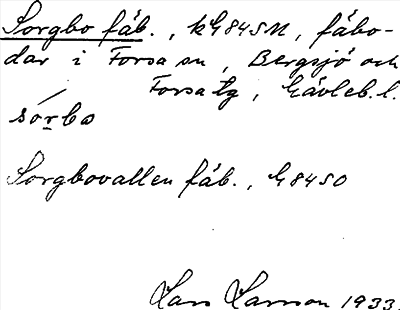 Sorgbo fäb., kG84SM, fäbo-
dar i Forsa sn, Bergsjö och
Forsa tg, Gävleb. l.
sórbo
Sorgbovallen fäb., G84SO
Lars Larsson 1933.